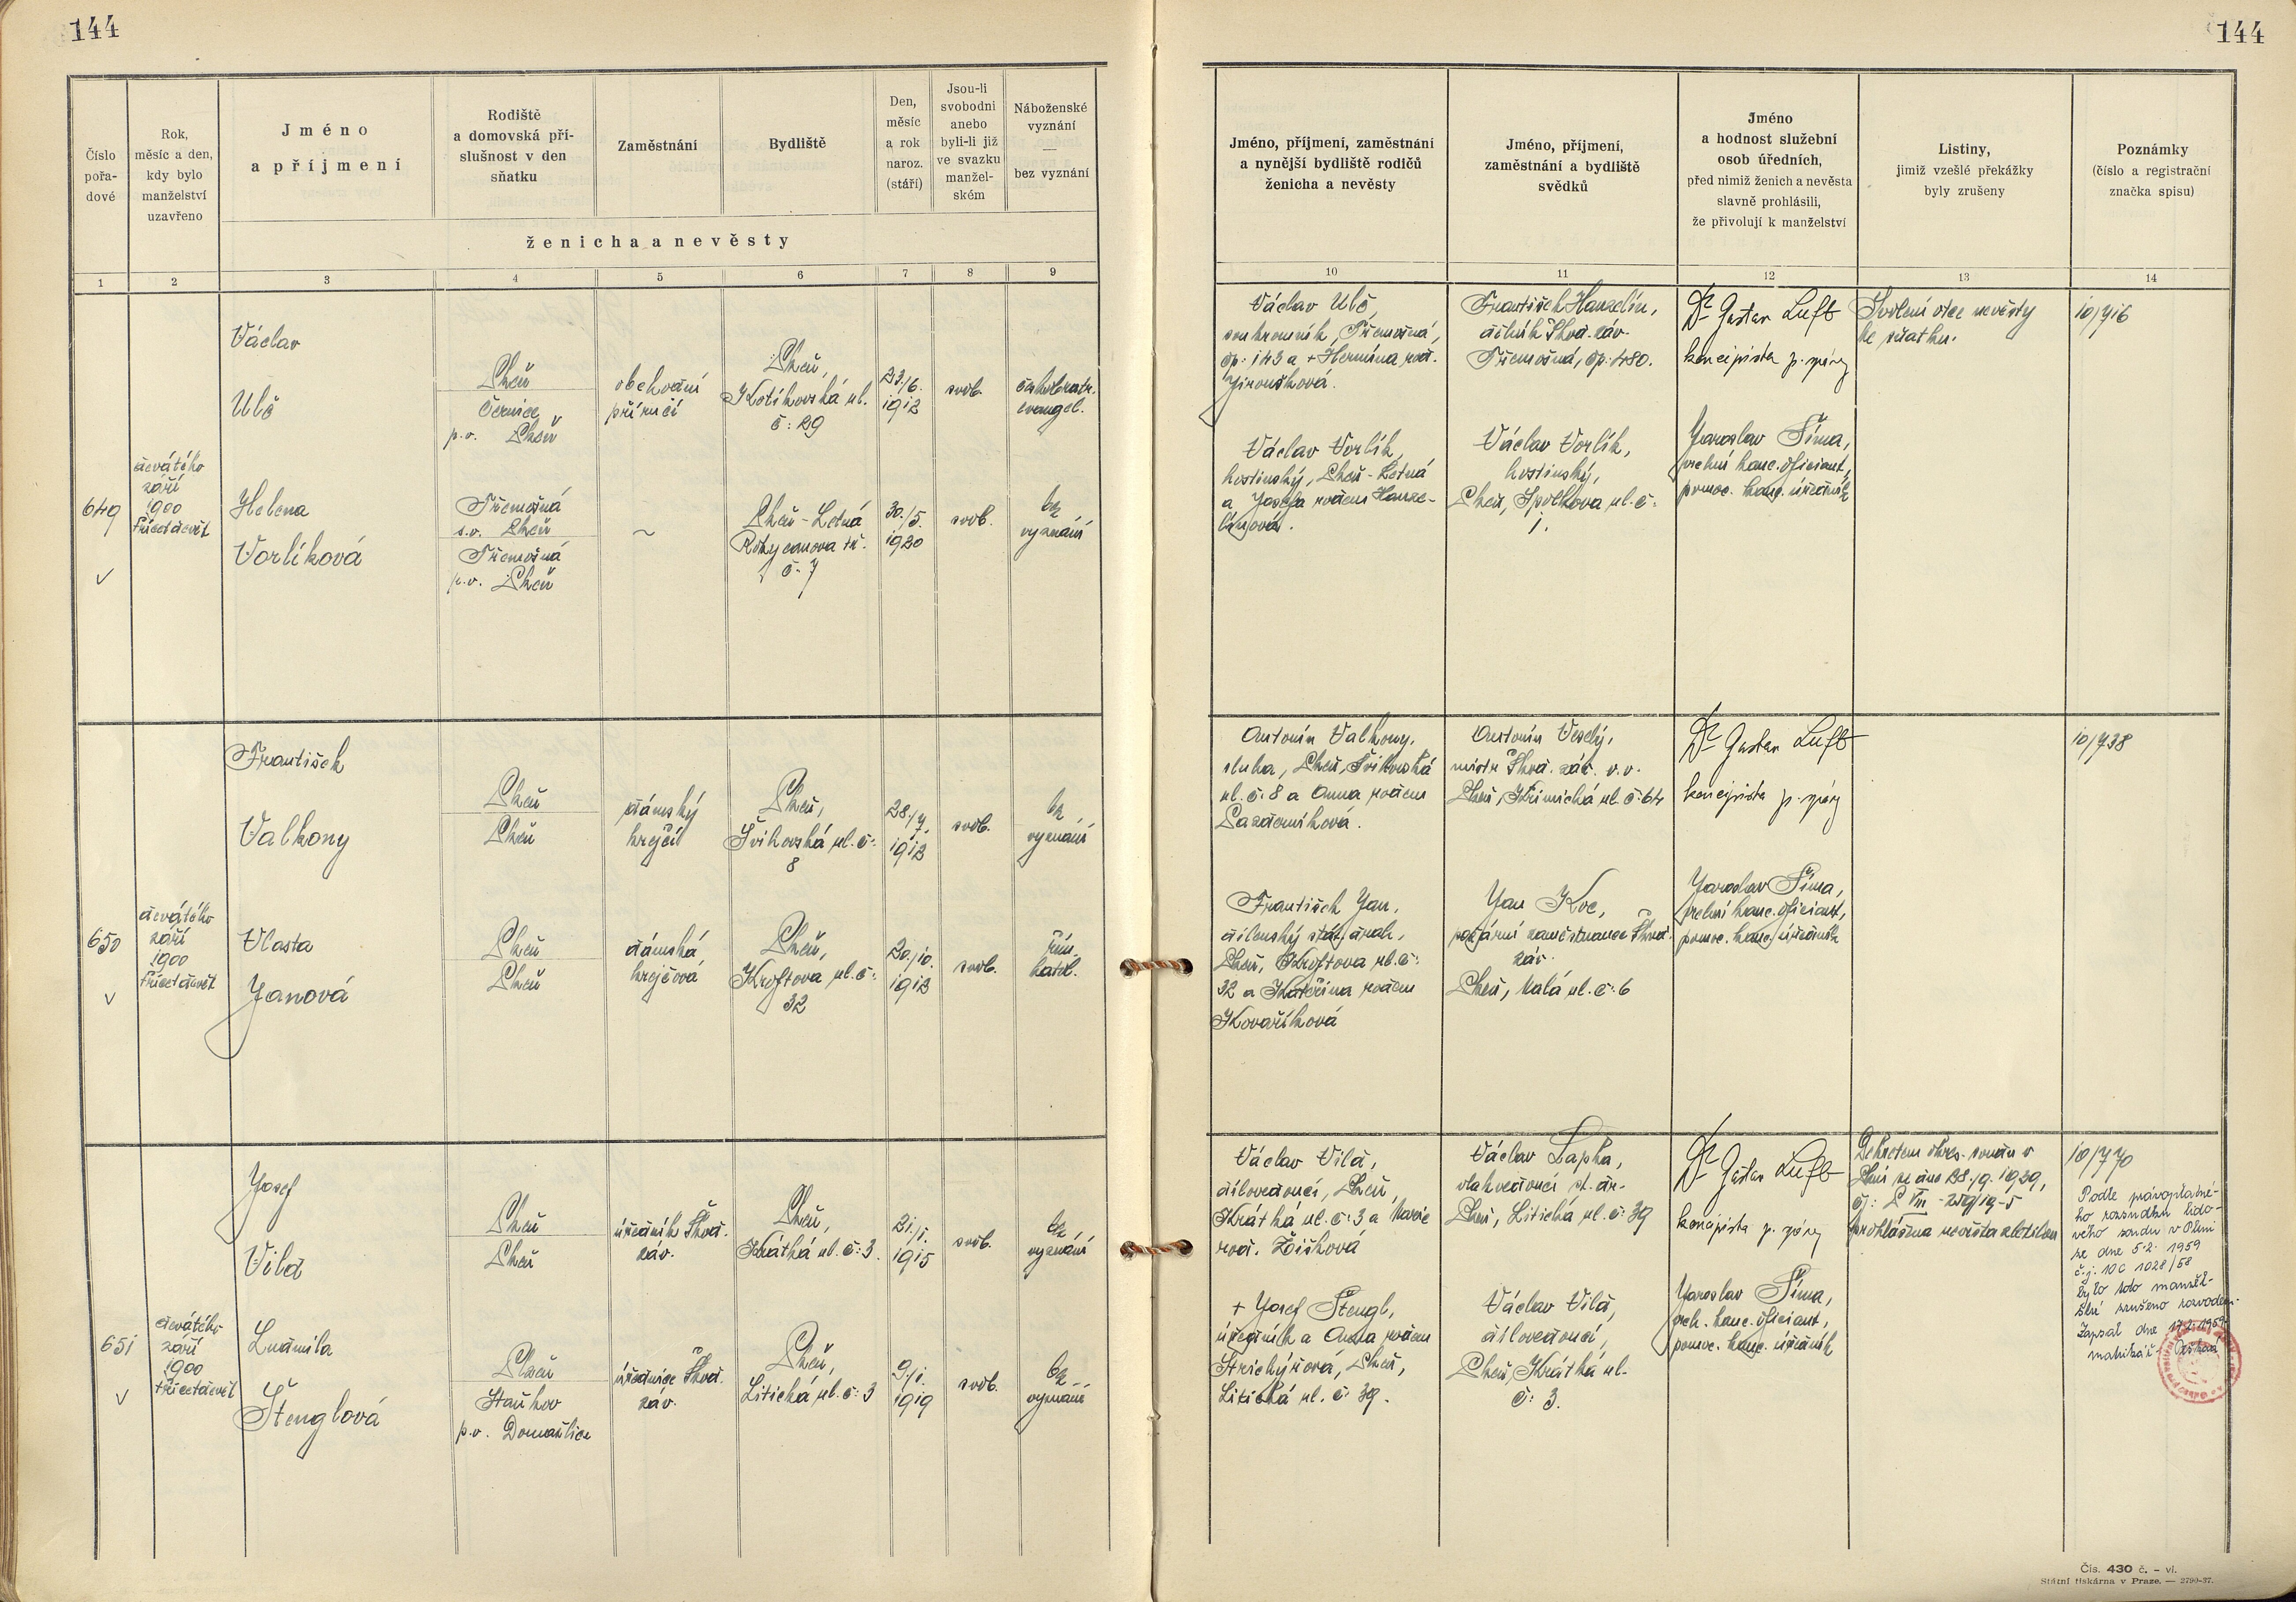 144
144
Číslo pořa- dové
Rok, měsíc a den, kdy bylo manželství uzavřeno
Jméno a příjmení
Rodiště a domovská pří- slušnost v den sňatku
Zaměstnání
Bydliště
Den, měsíc a rok naroz. (stáří)
Jsou-li svobodni anebo byli-li již ve svazku manžel- ském
Náboženské vyznání — bez vyznání
ženicha a nevěsty
Jméno, příjmení, zaměstnání a nynější bydliště rodičů ženicha a nevěsty
Jméno, příjmení, zaměstnání a bydliště svědků
Jméno a hodnost služební osob úředních, před nimiž ženich a nevěsta slavně prohlásili, že přivolují k manželství
Listiny, jimiž vzešlé překážky byly zrušeny
Poznámky (číslo a registrační značka spisu)
1 2 3 4 5 6 7 8 9 10 11 12 13 14
649
devátého
září
1900
třicetdevět
Václav
Ulč
Plzeň
Černice
p.o. Plzeň
obchodní
příručí
Plzeň,
Kotíkovská ul.
č: 29
23./6.
1912
svob.
českobratr.
evangel.
Helena
Vorlíková
Třemošná
s.o. Plzeň
Třemošná
p.o. Plzeň
~
Plzeň-Letná
Rokycanova tř.
č. 7
30./5.
1920
svob.
bez
vyznání
Václav Ulč,
soukromník, Třemošná,
čp: 143 a + Hermína roz.
Jiroušková.
Václav Vorlík,
hostinský, Plzeň-Letná
a Josefa rozená Hanze-
línová.
František Hanzelín,
dělník Škod. záv.
Třemošná, čp: 480.
Václav Vorlík,
hostinský,
Plzeň, Spolkova ul. č:
1.
Dr Gustav Luft
koncipista p. správy
Jaroslav Šíma,
přední kanc. oficiant,
pomoc. kanc. úředník
Svolení otce nevěsty
ke sňatku.
10/716
650
devátého
září
1900
třicetdevět
František
Valkony
Plzeň
Plzeň
dámský
krejčí
Plzeň,
Švihovská ul. č:
8
28./7.
1912
svob.
bez
vyznání
Vlasta
Janová
Plzeň
Plzeň
dámská
krejčová
Plzeň,
Kroftova ul. č:
32
20./10.
1912
svob.
řím.
katol.
Antonín Valkony,
sluha, Plzeň, Švihovská
ul. č: 8 a Anna rozená
Pazderníková.
František Jan,
dílenský stát. drah,
Plzeň, Kroftova ul. č:
32 a Kateřina rozená
Kovaříková
Antonín Veselý,
mistr Škod. záv. v.v.
Plzeň, Křimická ul. č: 64
Jan Koc,
požární zaměstnanec Škod.
záv.
Plzeň, Malá ul. č: 6
Dr Gustav Luft
koncipista p. správy
Jaroslav Šíma,
přední kanc. oficiant,
pomoc. kanc. úředník
10/738
651
devátého
září
1900
třicetdevět
Josef
Vild
Plzeň
Plzeň
úředník Škod.
záv.
Plzeň,
Krátká ul. č: 3.
21./1.
1915
svob.
bez
vyznání
Ludmila
Štenglová
Plzeň
Staňkov
p.o. Domažlice
úřednice Škod.
záv.
Plzeň,
Litická ul. č: 3
9./1.
1919
svob.
bez
vyznání
Václav Vild,
dílovedoucí, Plzeň,
Krátká ul. č: 3 a Marie
roz. Žižková
+ Josef Štengl,
úředník a Anna rozená
Plzeň,
Litická ul. č: 39.
Václav Lapka,
vlakvedoucí st. dr.
Plzeň, Litická ul. č: 39
Václav Vild,
dílovedoucí,
Plzeň, Krátká ul.
č: 3.
Dr Gustav Luft
koncipista p. správy
Jaroslav Šíma,
předn. kanc. oficiant,
pomoc. kanc. úředník
Dekretem okres. soudu v
Plzni ze dne 28./9. 1939,
prohlášena nevěsta zletilou
10/770
Podle pravoplatné-
ho rozsudku lido-
vého soudu v Plzni
ze dne 5.2. 1959
č.j. 10C 1028/58
bylo toto manžel-
ství zrušeno rozvodem.
Zapsal dne 17.2.1959
matrikář:
Čís. 430 č. – vl.
Státní tiskárna v Praze. — 2790-37.